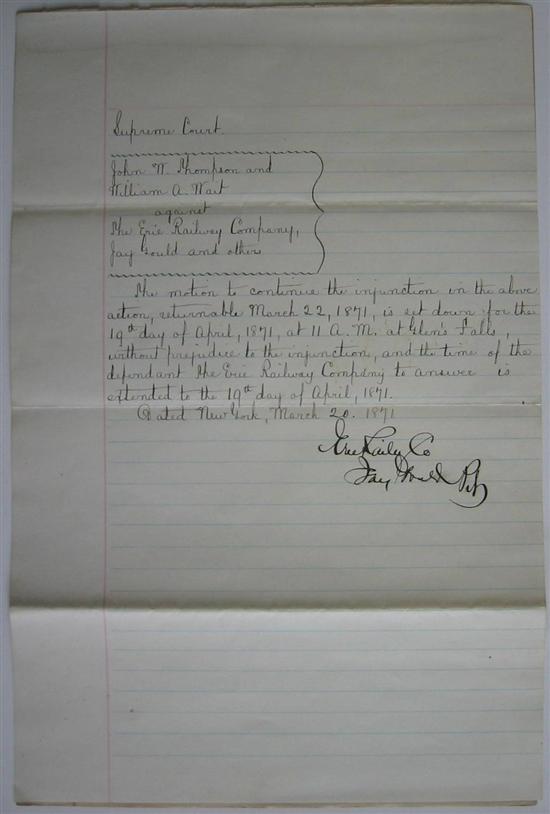 Supreme Court.
John W. Thompson and
William A. Wait
against
The Erie Railway Company,
Jay Gould and others
The motion to continue the injunction in the above
action, returnable March 22, 1871, is set down for the
19th day of April, 1871, at 11 A.M. at Glen's Falls,
without prejudice to the injunction, and the time of the
defendant The Erie Railway Company to answer is
extended to the 19th day of April, 1871.
Dated New York, March 20. 1871
Erie Railwy Co
Jay Gould